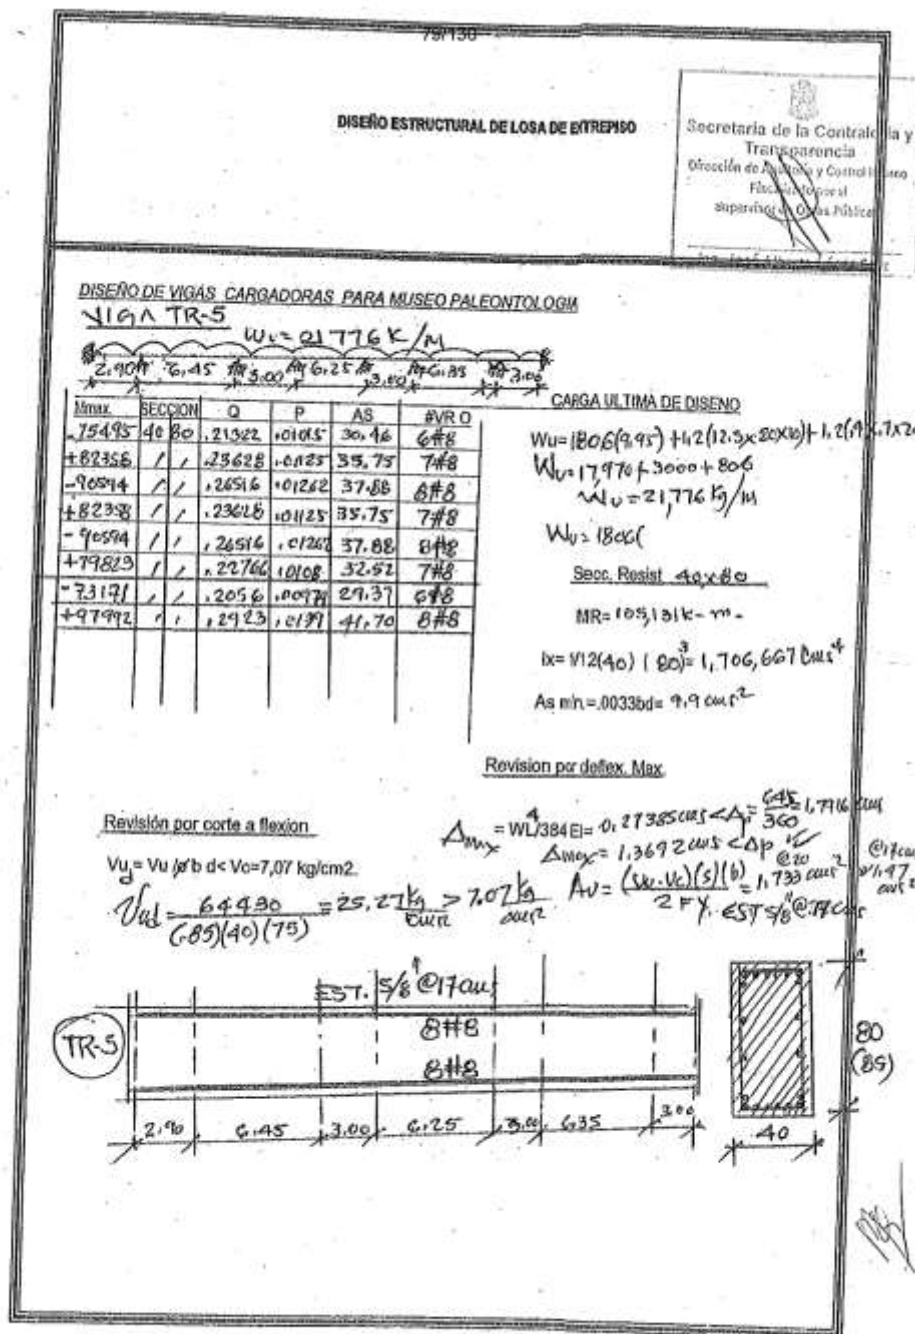 79/130
DISEÑO ESTRUCTURAL DE LOSA DE ENTREPISO
Secretaria de la Contraloria y
Transparencia
Dirección de Auditoria y Control Interno
Fiscalizado por el
Supervisor de Obras Públicas
DISEÑO DE VIGAS CARGADORAS PARA MUSEO PALEONTOLOGIA
VIGA TR-5
Wu=21776 K/M
2.90 6.45 3.00 6.25 3.00 6.35 3.00
Mmax. SECCION Q P AS #VR O
-75495 40 80 .21322 .01015 30.46 6#8
+82358 / / .23628 .01125 33.75 7#8
-90594 / / .26516 .01262 37.88 8#8
+82358 / / .23628 .01125 33.75 7#8
-90594 / / .26516 .01262 37.88 8#8
+79823 / / .22766 .0108 32.52 7#8
-73171 / / .2056 .00979 29.37 6#8
+97992 / / .2923 .0139 41.70 8#8
CARGA ULTIMA DE DISEÑO
Wu=1806(9.95)+1.2(12.5x20x10)+1.2(.4x.7x2
Wu=17,970+3000+806
Wu=21,776 kg/m
Wu=1806(
Secc. Resist 40x80
MR=105,131k-m-
Ix=1/12(40)(80)³=1,706,667 cms⁴
As min=.0033bd= 9.9 cms²
Revision por deflex. Max.
Revisión por corte a flexion
Δmax = WL⁴/384EI= 0.27385cms<Δp=645/360=1.7916 cms
Δmax= 1.3692cms<Δp
Vu= Vu/øb d< Vc=7,07 kg/cm2.
Vud= 64430/(.85)(40)(75) =25.27 kg/cm2 > 7.07 kg/cm2
Av= (Vu-Vc)(s)(b)/2FY =1.733 cms²
@20
@17cms
1.47 cms²
EST 5/8"@.17cms
EST. 5/8"@17cms
TR-5
8#8
8#8
80
(85)
2.90 6.45 3.00 6.25 3.00 6.35 3.00
40